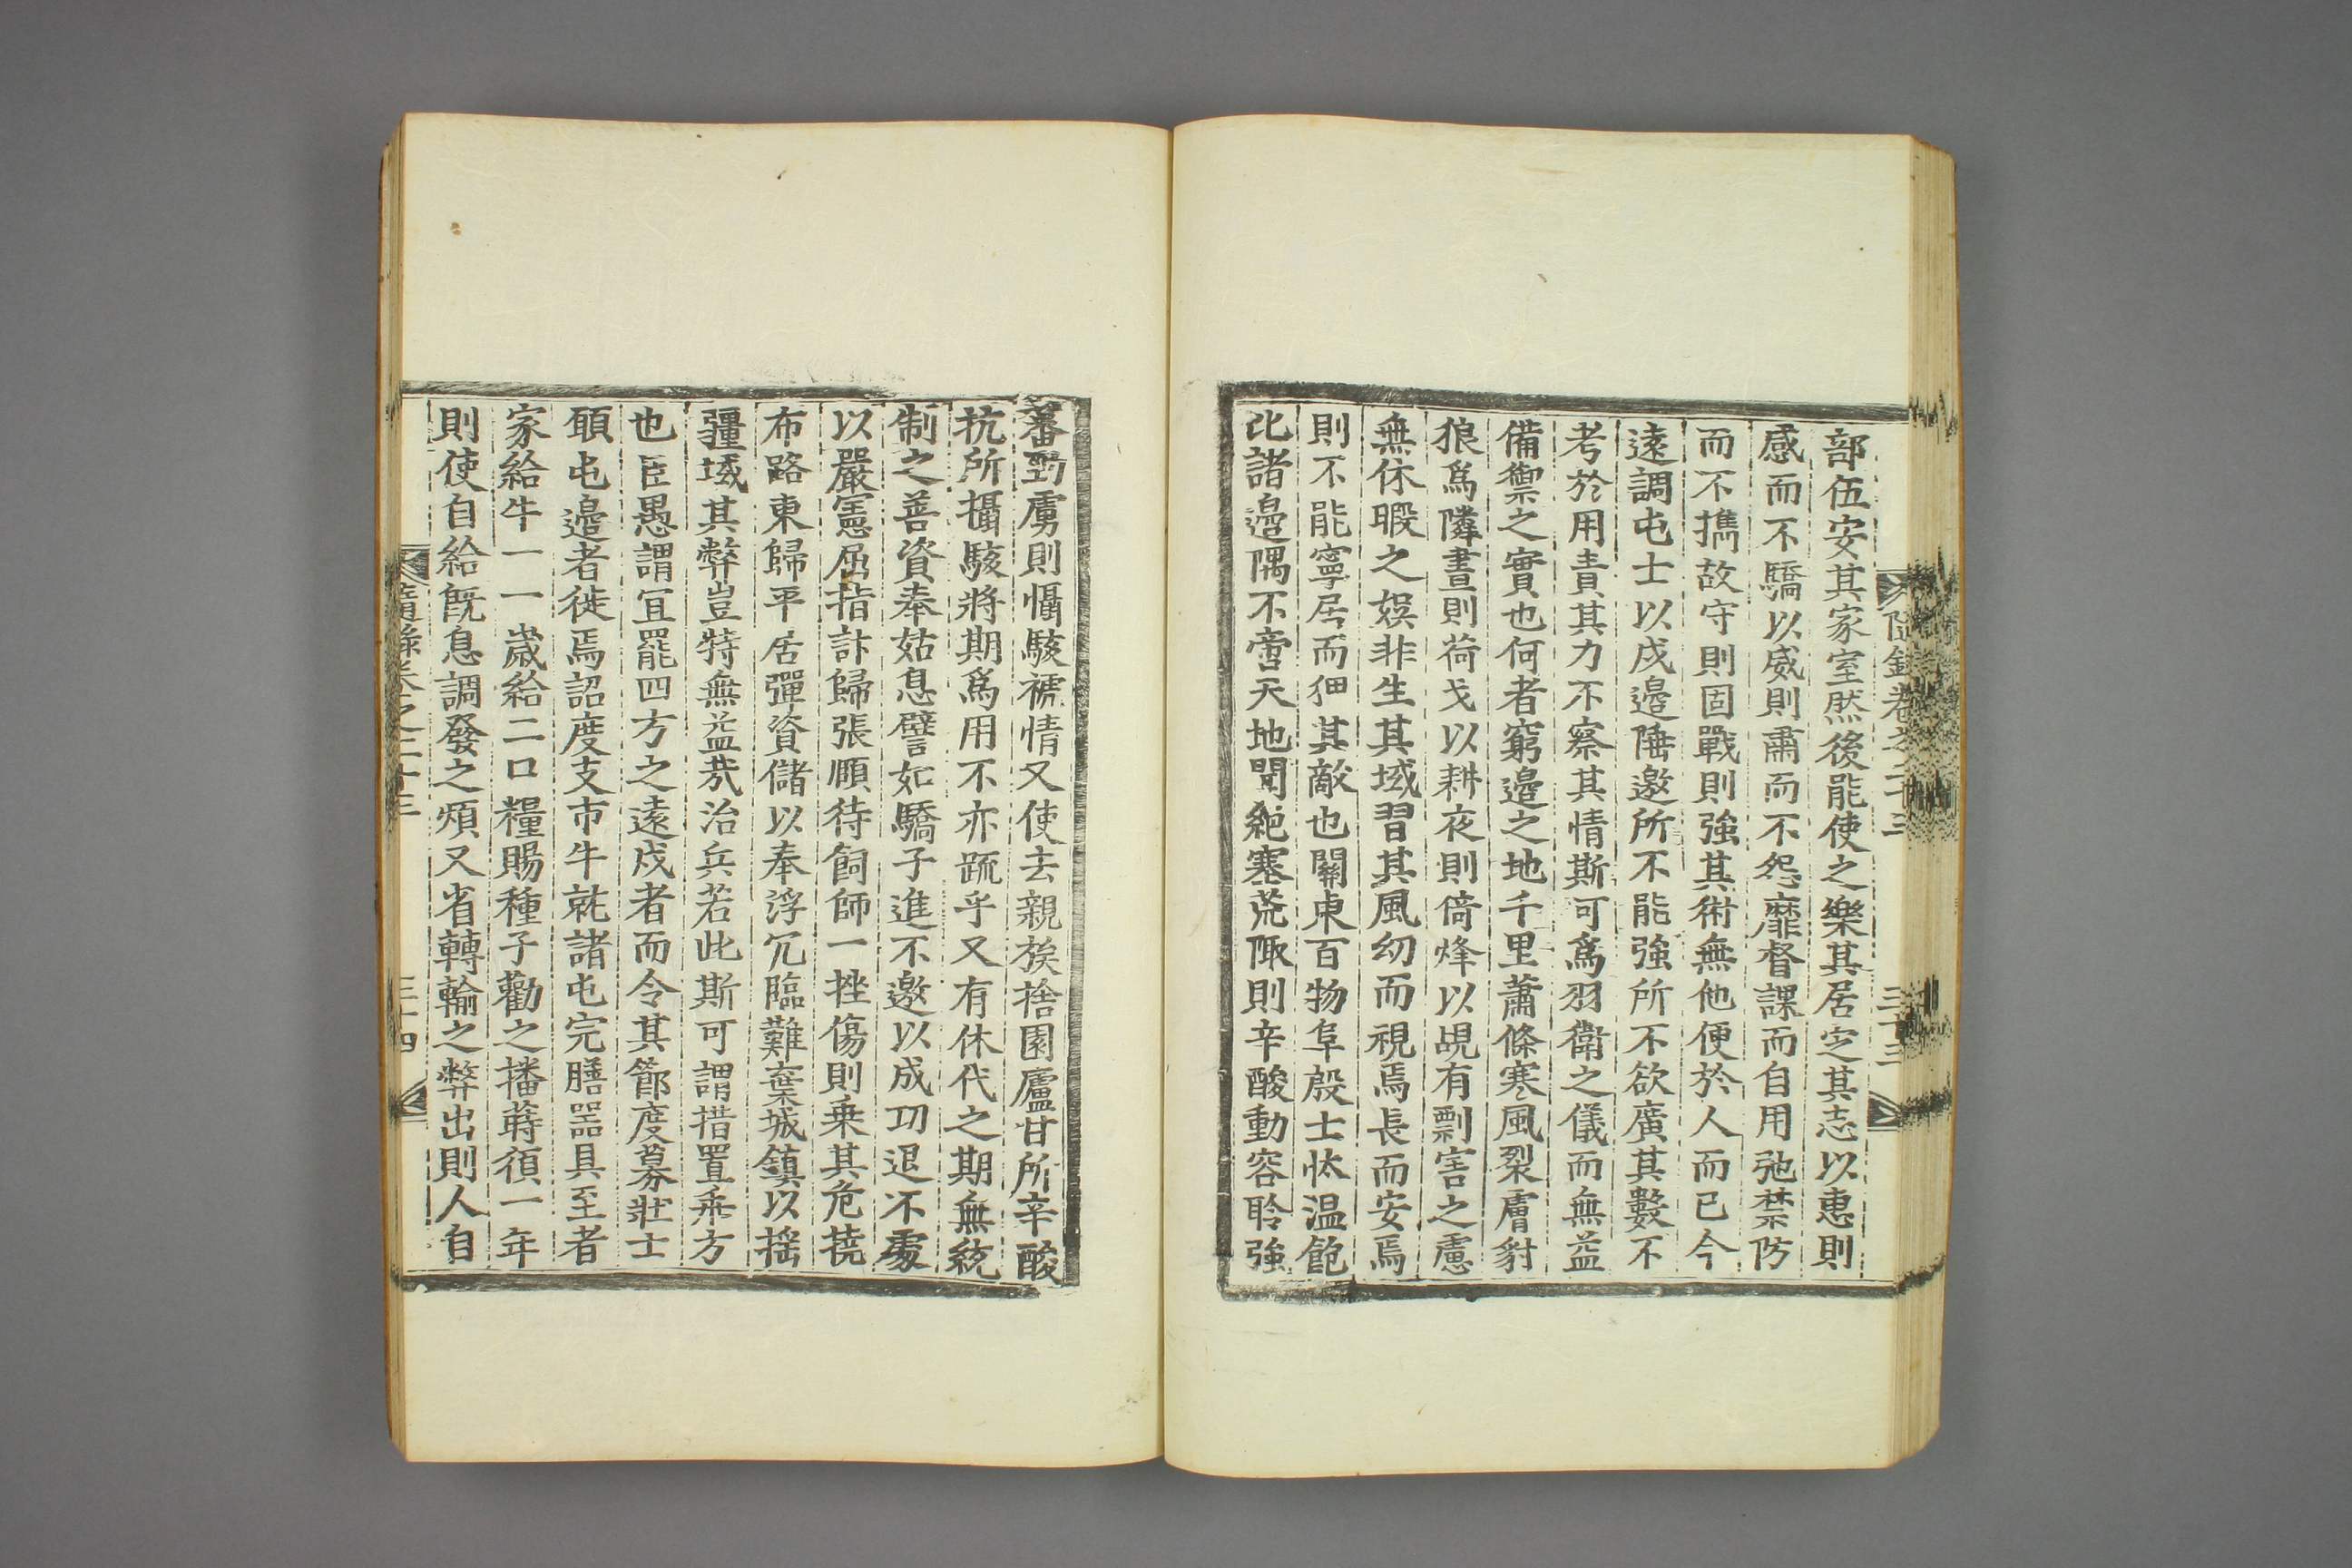 隨錄卷之二十三
三十三
部伍安其家室然後能使之樂其居定其志以惠則
感而不驕以威則肅而不怨靡督課而自用弛禁防
而不攜故守則固戰則強其術無他便於人而已今
遠調屯士以戍邊陲邀所不能強所不欲廣其數不
考於用責其力不察其情斯可爲羽衛之儀而無益
備禦之實也何者窮邊之地千里蕭條寒風裂膚豺
狼爲隣晝則荷戈以耕夜則倚烽以覘有剽害之慮
無休暇之娛非生其域習其風幼而視焉長而安焉
則不能寧居而狃其敵也關東百物阜殷士忲温飽
比諸邊隅不啻天地聞絶塞荒陬則辛酸動容聆強
蕃勁虜則懾駭褫情又使去親族捨園廬甘所辛酸
抗所攝駭將期爲用不亦疏乎又有休代之期無統
制之善資奉姑息譬如驕子進不邀以成功退不處
以嚴憲屈指計歸張頤待飼師一挫傷則乗其危撓
布路東歸平居殫資儲以奉浮冗臨難棄城鎮以揺
疆埸其弊豈特無益㢤治兵若此斯可謂措置乖方
也臣愚謂冝罷四方之遠戍者而令其節度募壯士
願屯邊者徙焉詔度支市牛就諸屯完膳器具至者
家給牛一一歲給二口糧賜種子勸之播蒔須一年
則使自給旣息調發之煩又省轉輸之弊出則人自
隨錄卷之二十三
三十四